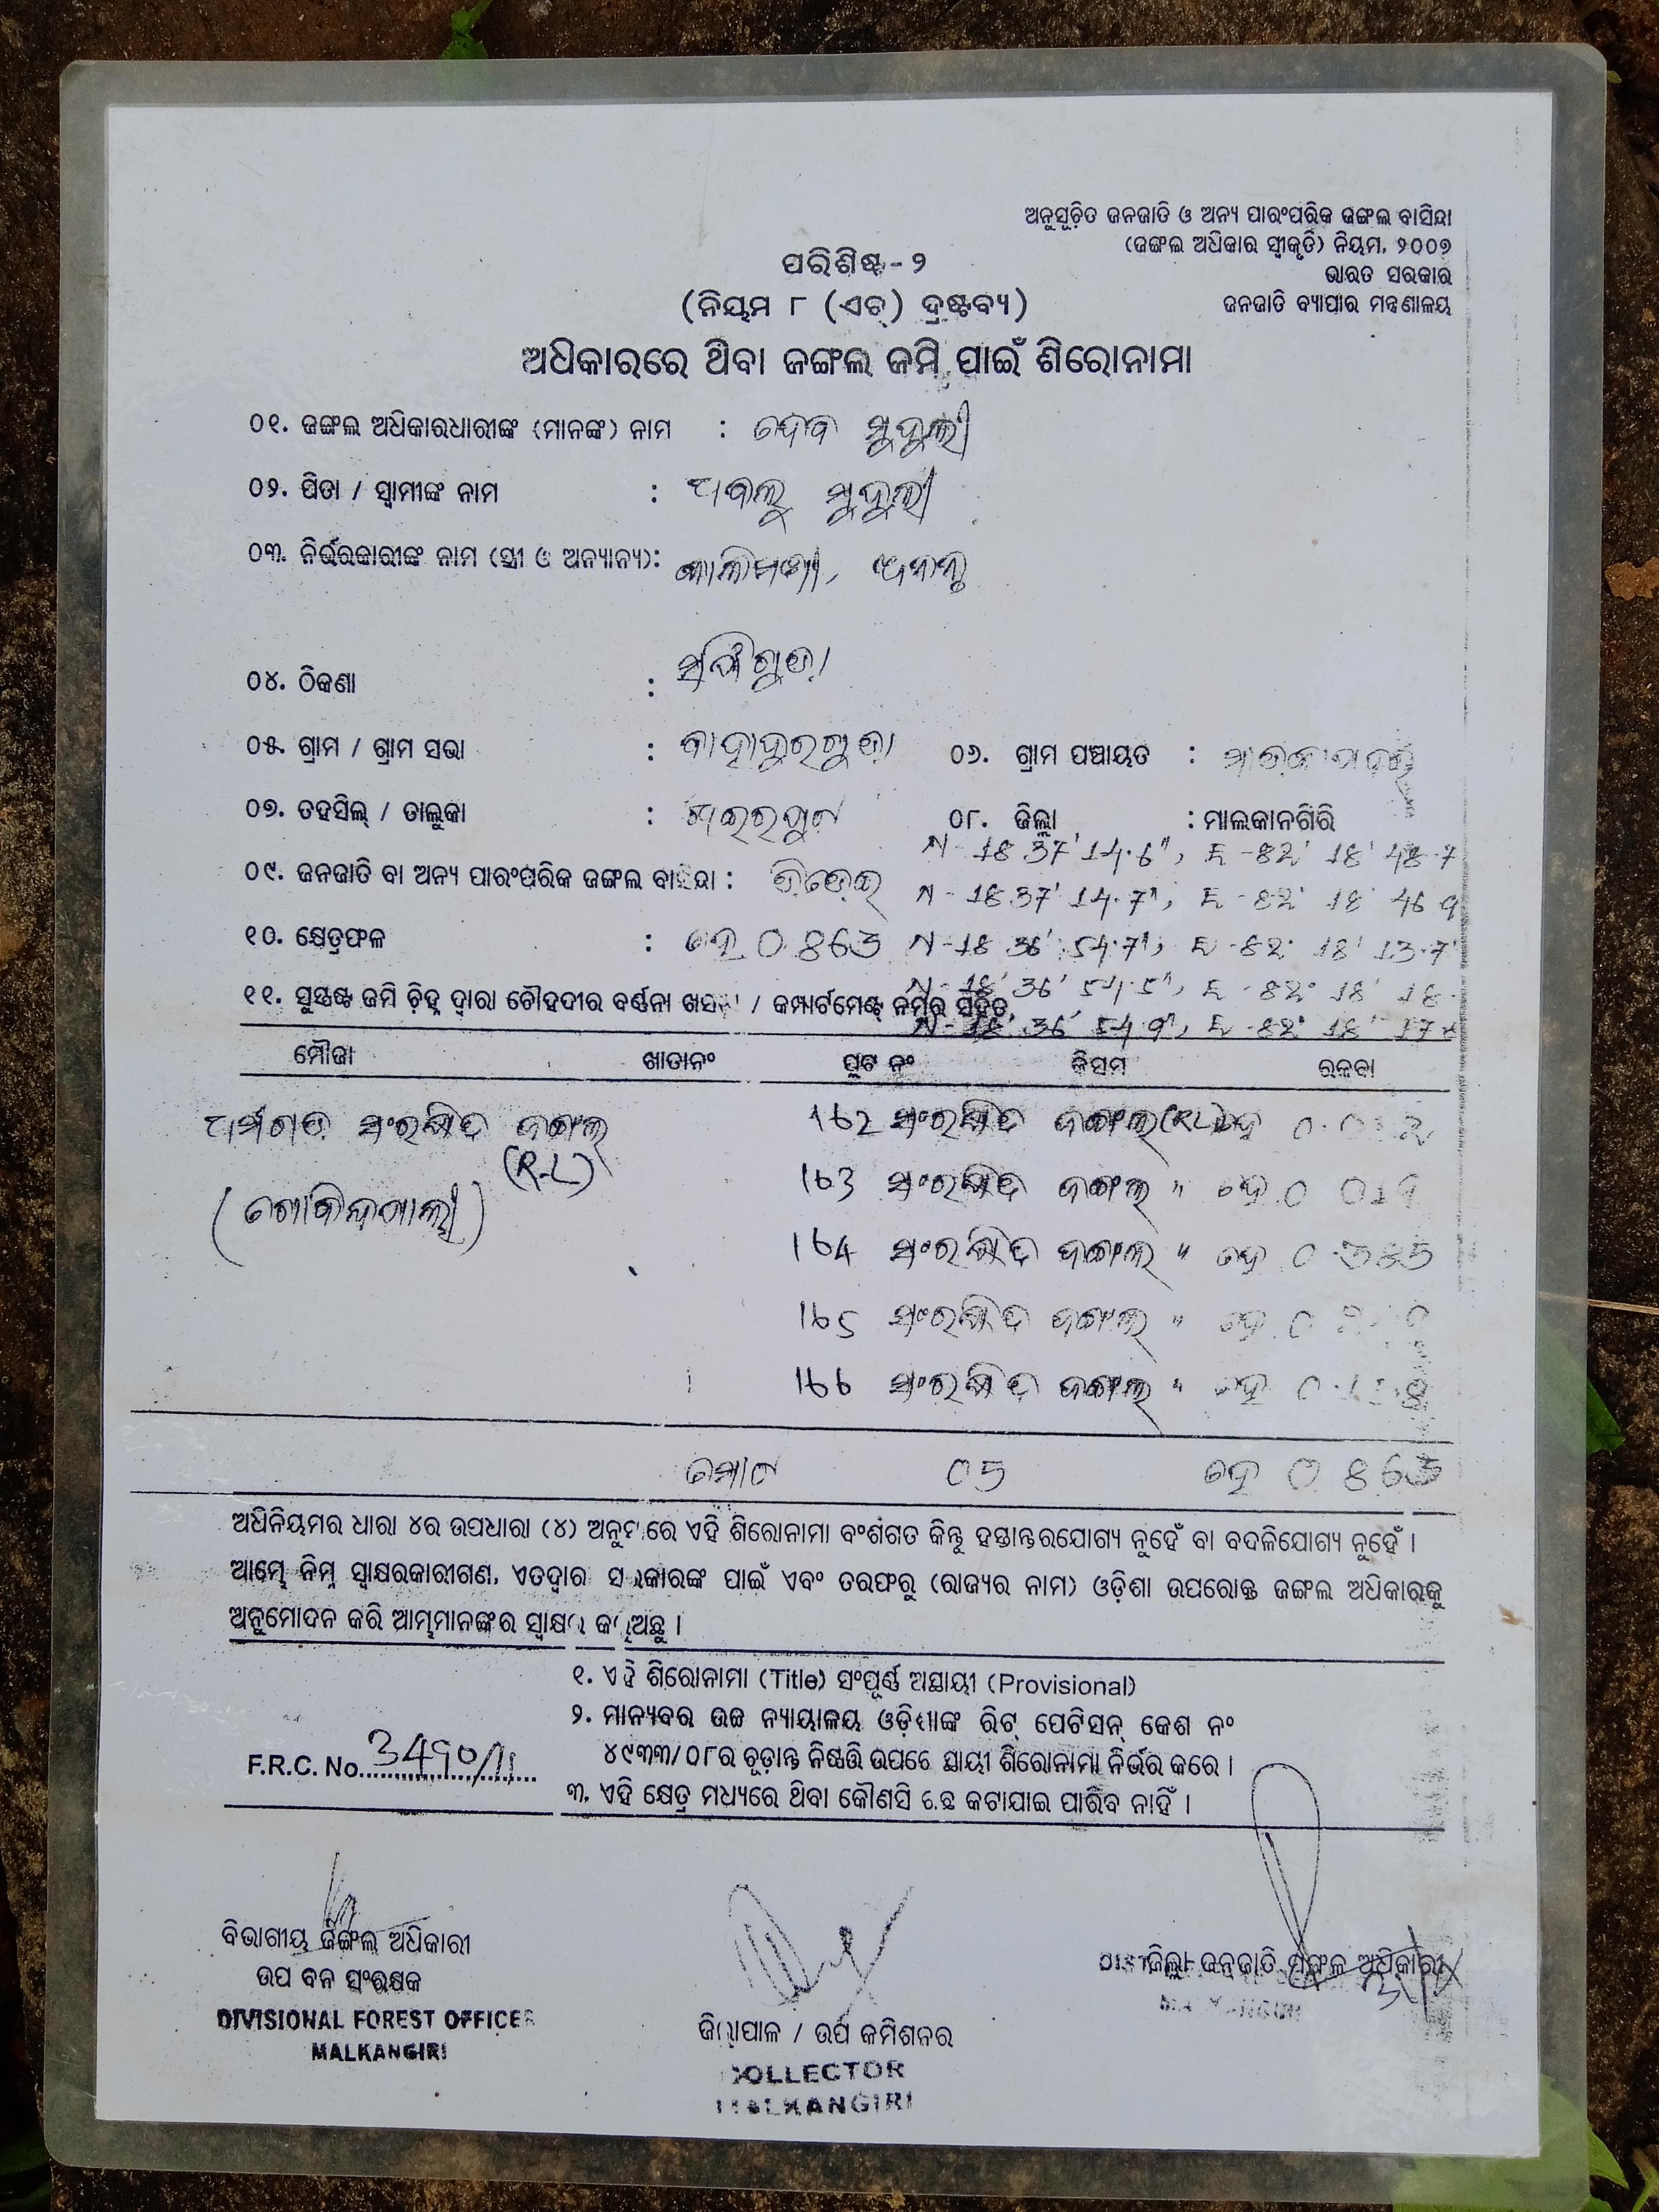 ଅନୁସୂଚିତ ଜନଜାତି ଓ ଅନ୍ୟ ପାରଂପରିକ ଜଙ୍ଗଲ ବାସିନ୍ଦା
(ଜଙ୍ଗଲ ଅଧିକାର ସ୍ୱୀକୃତି) ନିୟମ, ୨୦୦୭
ଭାରତ ସରକାର
ଜନଜାତି ବ୍ୟାପାର ମନ୍ତ୍ରଣାଳୟ
ପରିଶିଷ୍ଟ - ୨
(ନିୟମ ୮ (ଏଚ୍) ଦ୍ରଷ୍ଟବ୍ୟ)
ଅଧିକାରରେ ଥିବା ଜଙ୍ଗଲ ଜମି ପାଇଁ ଶିରୋନାମା
୦୧. ଜଙ୍ଗଲ ଅଧିକାରଧାରୀଙ୍କ (ମାନଙ୍କ) ନାମ : ଦେବ ମୁଦୁଲୀ
୦୨. ପିତା / ସ୍ୱାମୀଙ୍କ ନାମ : ମୁଦୁଲୀ
୦୩. ନିର୍ଭରକାରୀଙ୍କ ନାମ (ସ୍ତ୍ରୀ ଓ ଅନ୍ୟାନ୍ୟ) :
୦୪. ଠିକଣା :
୦୫. ଗ୍ରାମ / ଗ୍ରାମ ସଭା : ବାହାଦୁରଗୁଡ଼ା ୦୬. ଗ୍ରାମ ପଞ୍ଚାୟତ :
୦୭. ତହସିଲ୍ / ତାଲୁକା : ଖଇରପୁଟ ୦୮. ଜିଲ୍ଲା : ମାଲକାନଗିରି
N-18 37' 14.6", E-82' 18' 48.7
୦୯. ଜନଜାତି ବା ଅନ୍ୟ ପାରଂପରିକ ଜଙ୍ଗଲ ବାସିନ୍ଦା :
N-18 37' 14.7", E-82' 18' 46 9
୧୦. କ୍ଷେତ୍ରଫଳ : ହେ 0 863 N-18 36' 54.7", E-82' 18' 13.7"
N-18' 36' 54.5", E-82° 18' 18.
୧୧. ସୁସ୍ପଷ୍ଟ ଜମି ଚିହ୍ନ ଦ୍ୱାରା ଚୌହଦୀର ବର୍ଣ୍ଣନା / କମ୍ପାର୍ଟମେଣ୍ଟ୍ ନମ୍ବର ସହିତ
N-18' 36' 54.9", E-82° 18'
ମୌଜା ଖାତାନଂ ପ୍ଲଟ ନଂ କିସମ ରକବା
ସଂରକ୍ଷିତ ଜଙ୍ଗଲ 162 ସଂରକ୍ଷିତ ଜଙ୍ଗଲ (RL) ହେ
(R-L)
(ଗୋବିନ୍ଦପାଲୀ)
163 ସଂରକ୍ଷିତ ଜଙ୍ଗଲ " ହେ 0
164 ସଂରକ୍ଷିତ ଜଙ୍ଗଲ " ହେ 0
165 ସଂରକ୍ଷିତ ଜଙ୍ଗଲ " ହେ 0
166 ସଂରକ୍ଷିତ ଜଙ୍ଗଲ " ହେ
ମୋଟ 05 ହେ 0 863
ଅଧିନିୟମର ଧାରା ୪ର ଉପଧାରା (୪) ଏହି ଶିରୋନାମା ବଂଶଗତ କିନ୍ତୁ ହସ୍ତାନ୍ତରଯୋଗ୍ୟ ନୁହେଁ ବା ବଦଳିଯୋଗ୍ୟ ନୁହେଁ ।
ଆମ୍ଭେ ନିମ୍ନ ସ୍ୱାକ୍ଷରକାରୀଗଣ, ଏତଦ୍ୱାରା ପାଇଁ ଏବଂ ତରଫରୁ (ରାଜ୍ୟର ନାମ) ଓଡ଼ିଶା ଉପରୋକ୍ତ ଜଙ୍ଗଲ ଅଧିକାରକୁ
ଅନୁମୋଦନ କରି ଆମ୍ଭମାନଙ୍କର ସ୍ୱାକ୍ଷର କରୁଅଛୁ ।
୧. ଏହି ଶିରୋନାମା (Title) ସଂପୂର୍ଣ୍ଣ ଅସ୍ଥାୟୀ (Provisional)
୨. ମାନ୍ୟବର ଉଚ୍ଚ ନ୍ୟାୟାଳୟ ଓଡ଼ିଶାଙ୍କ ରିଟ୍ ପେଟିସନ୍ କେଶ ନଂ
୪୯୩୩/୦୮ର ଚୂଡ଼ାନ୍ତ ନିଷ୍ପତ୍ତି ଉପରେ ସ୍ଥାୟୀ ଶିରୋନାମା ନିର୍ଭର କରେ ।
F.R.C. No. 3490/11
୩. ଏହି କ୍ଷେତ୍ର ମଧ୍ୟରେ ଥିବା କୌଣସି ଗଛ କଟାଯାଇ ପାରିବ ନାହିଁ ।
ବିଭାଗୀୟ ଜଙ୍ଗଲ ଅଧିକାରୀ
ଉପ ବନ ସଂରକ୍ଷକ
DIVISIONAL FOREST OFFICER
MALKANGIRI
ଜିଲ୍ଲାପାଳ / ଉପ କମିଶନର
COLLECTOR
MALKANGIRI
ଜିଲ୍ଲା ଜନଜାତି ମଙ୍ଗଳ ଅଧିକାରୀ